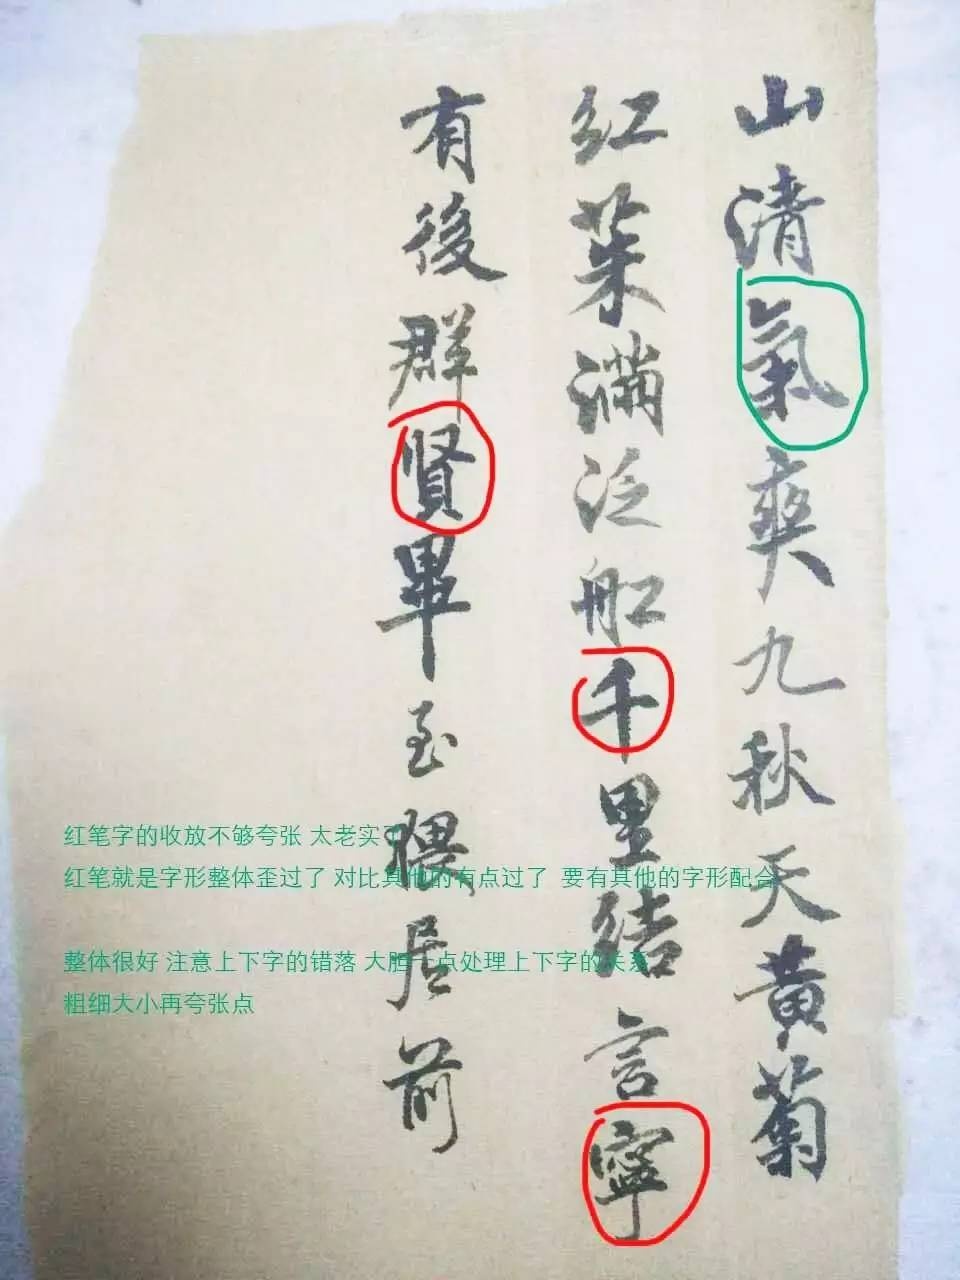 山清氣爽九秋天黃菊
紅茱滿泛船千里結言寧
有後群賢畢至猥居前
红笔字的收放不够夸张 太老实了
红笔就是字形整体歪过了 对比其他的有点过了 要有其他的字形配合
整体很好 注意上下字的错落 大胆一点处理上下字的关系
粗细大小再夸张点